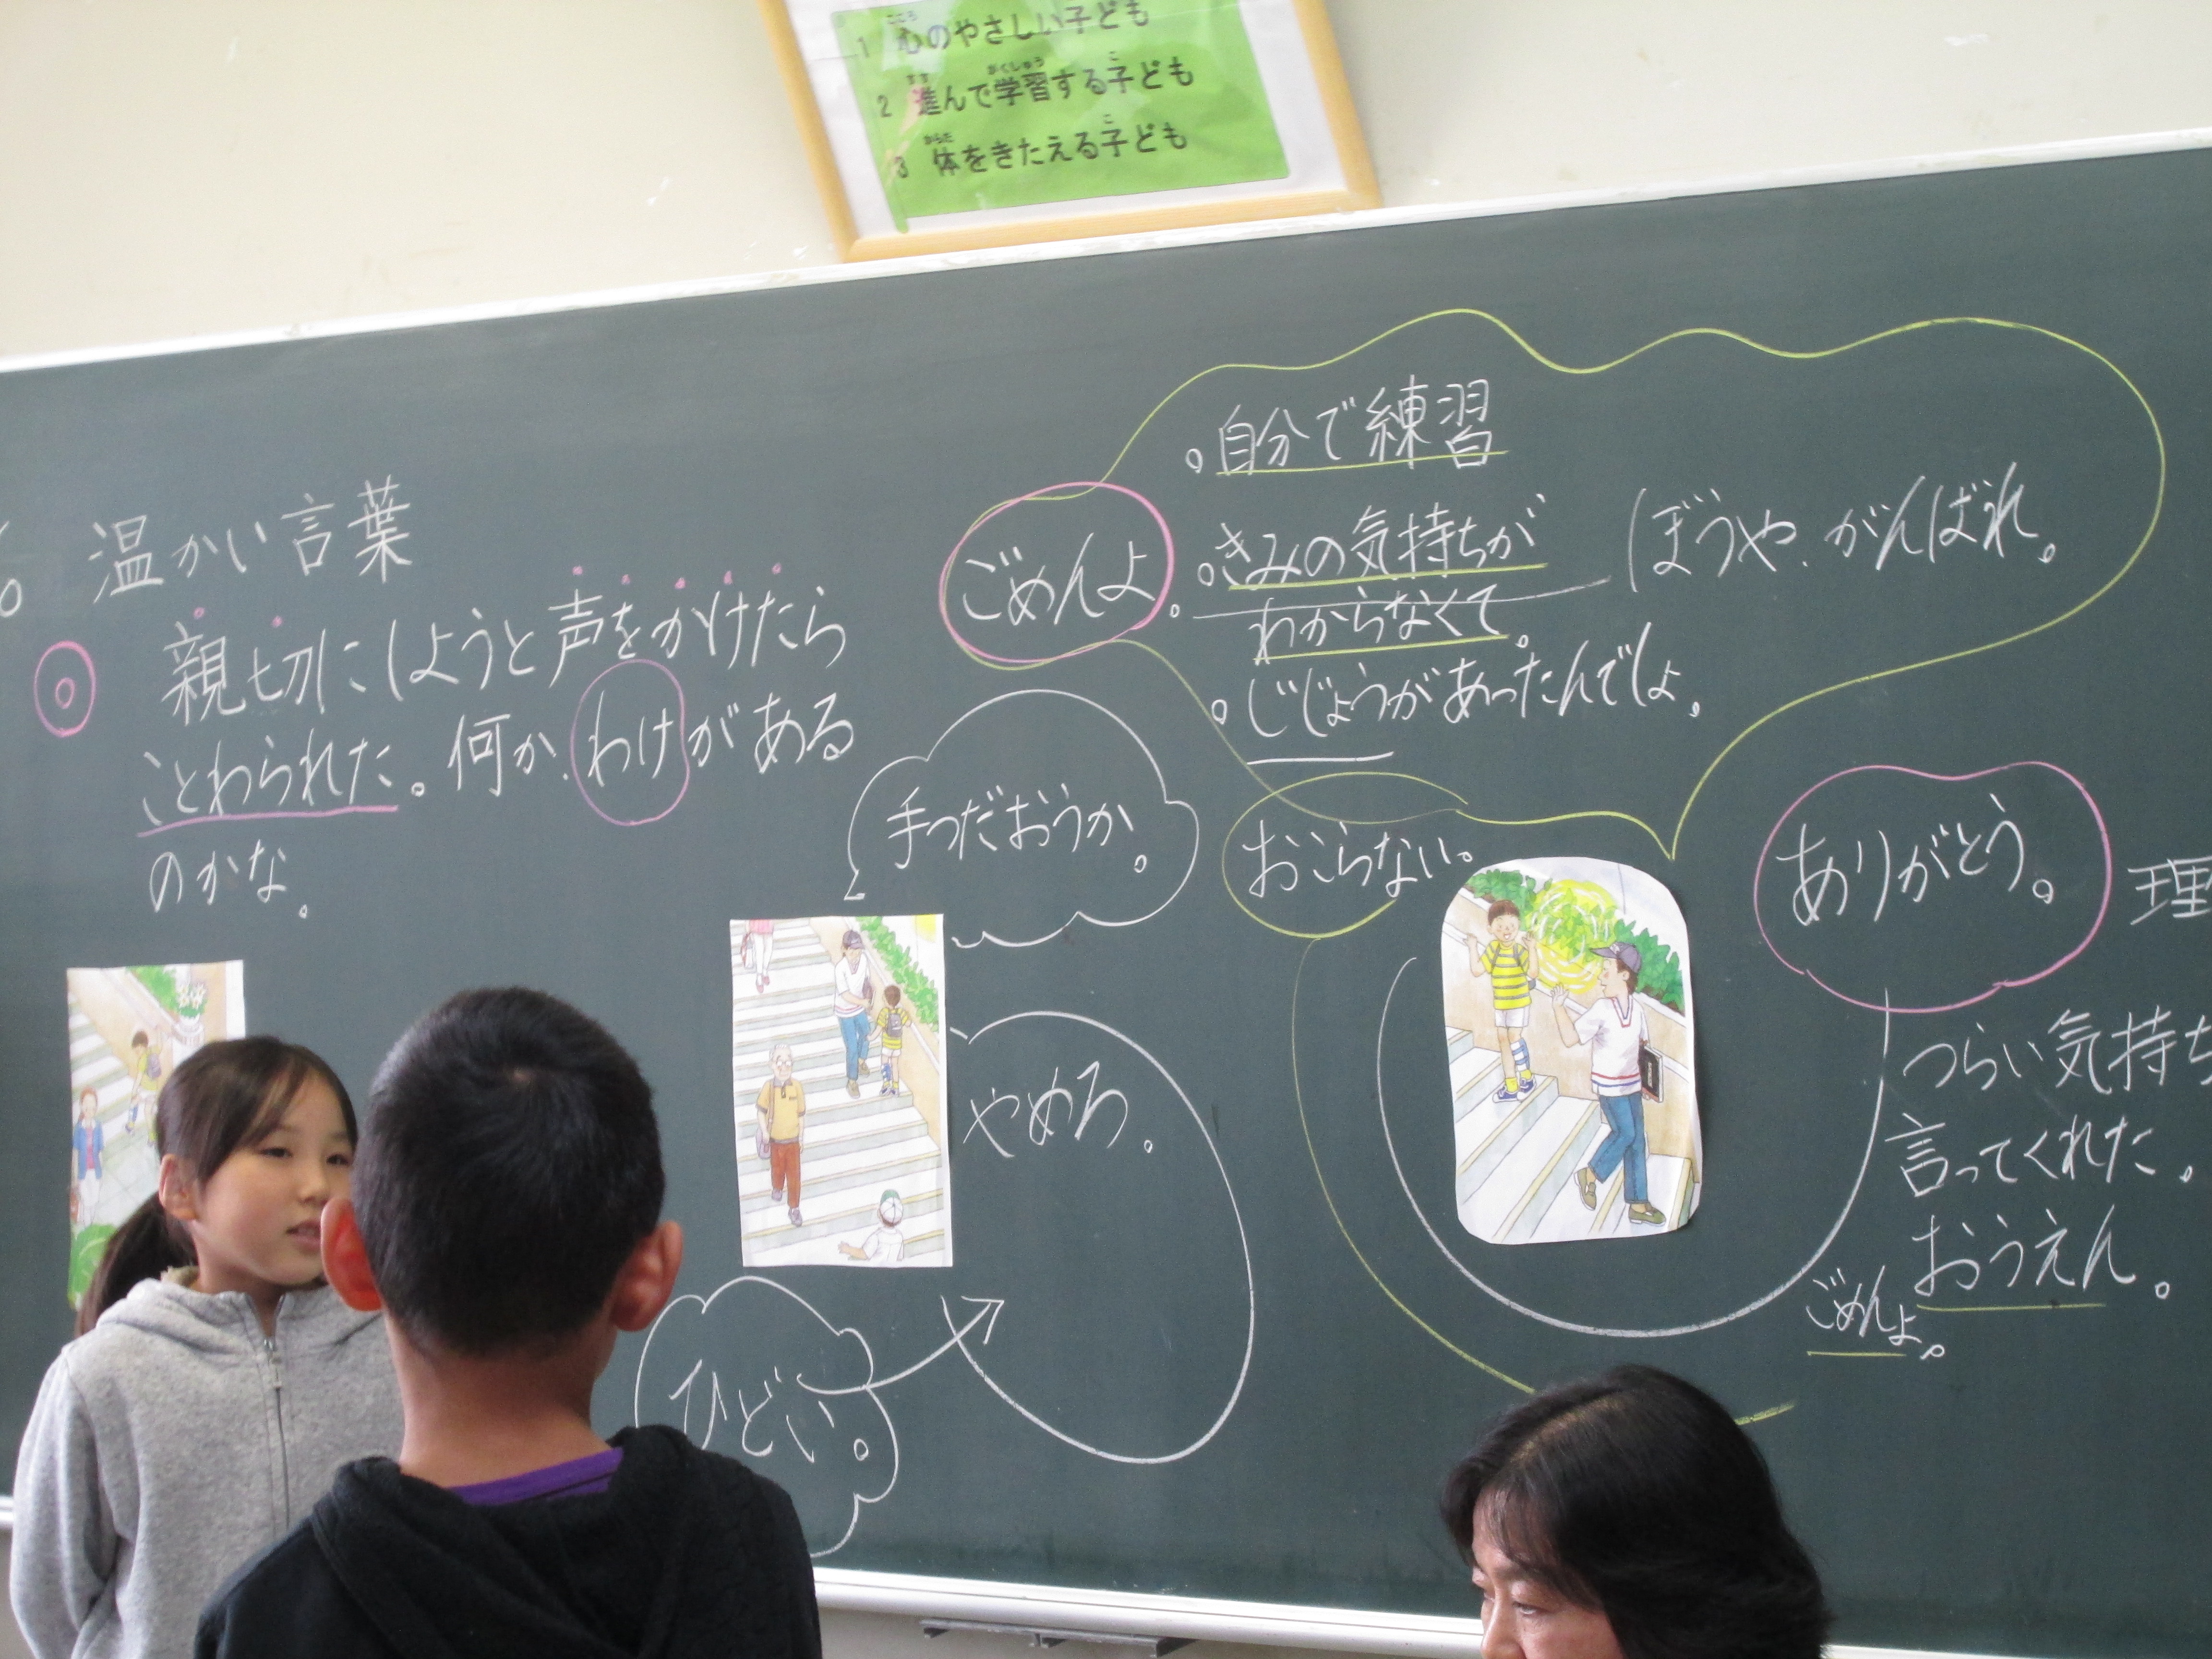 1 心のやさしい子ども
2 進んで学習する子ども
3 体をきたえる子ども
温かい言葉
親切にしようと声をかけたら
ことわられた。何か、わけがある
のかな。
ごめんよ。
。自分で練習
。きみの気持ちが
わからなくて。
。じじょうがあったんでしょ。
ぼうや、がんばれ。
手つだおうか。
やめろ。
ひどい。
おこらない。
ありがとう。
理
つらい気持ち
言ってくれた。
おうえん。
ごめんよ。